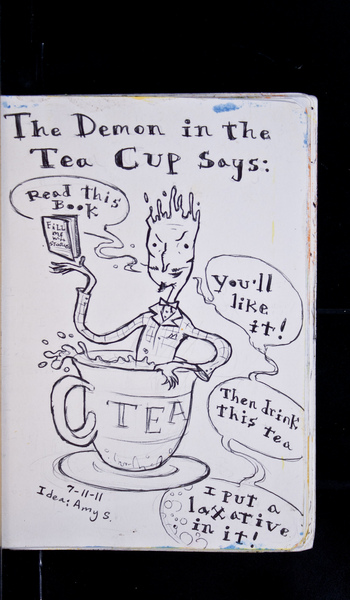 The Demon in the
Tea Cup Says:
Read this
Book
Fill
me
with
You'll
like
it!
Then drink
this tea
TEA
I put a
laxative
in it!
7-11-11
Idea: Amy S.